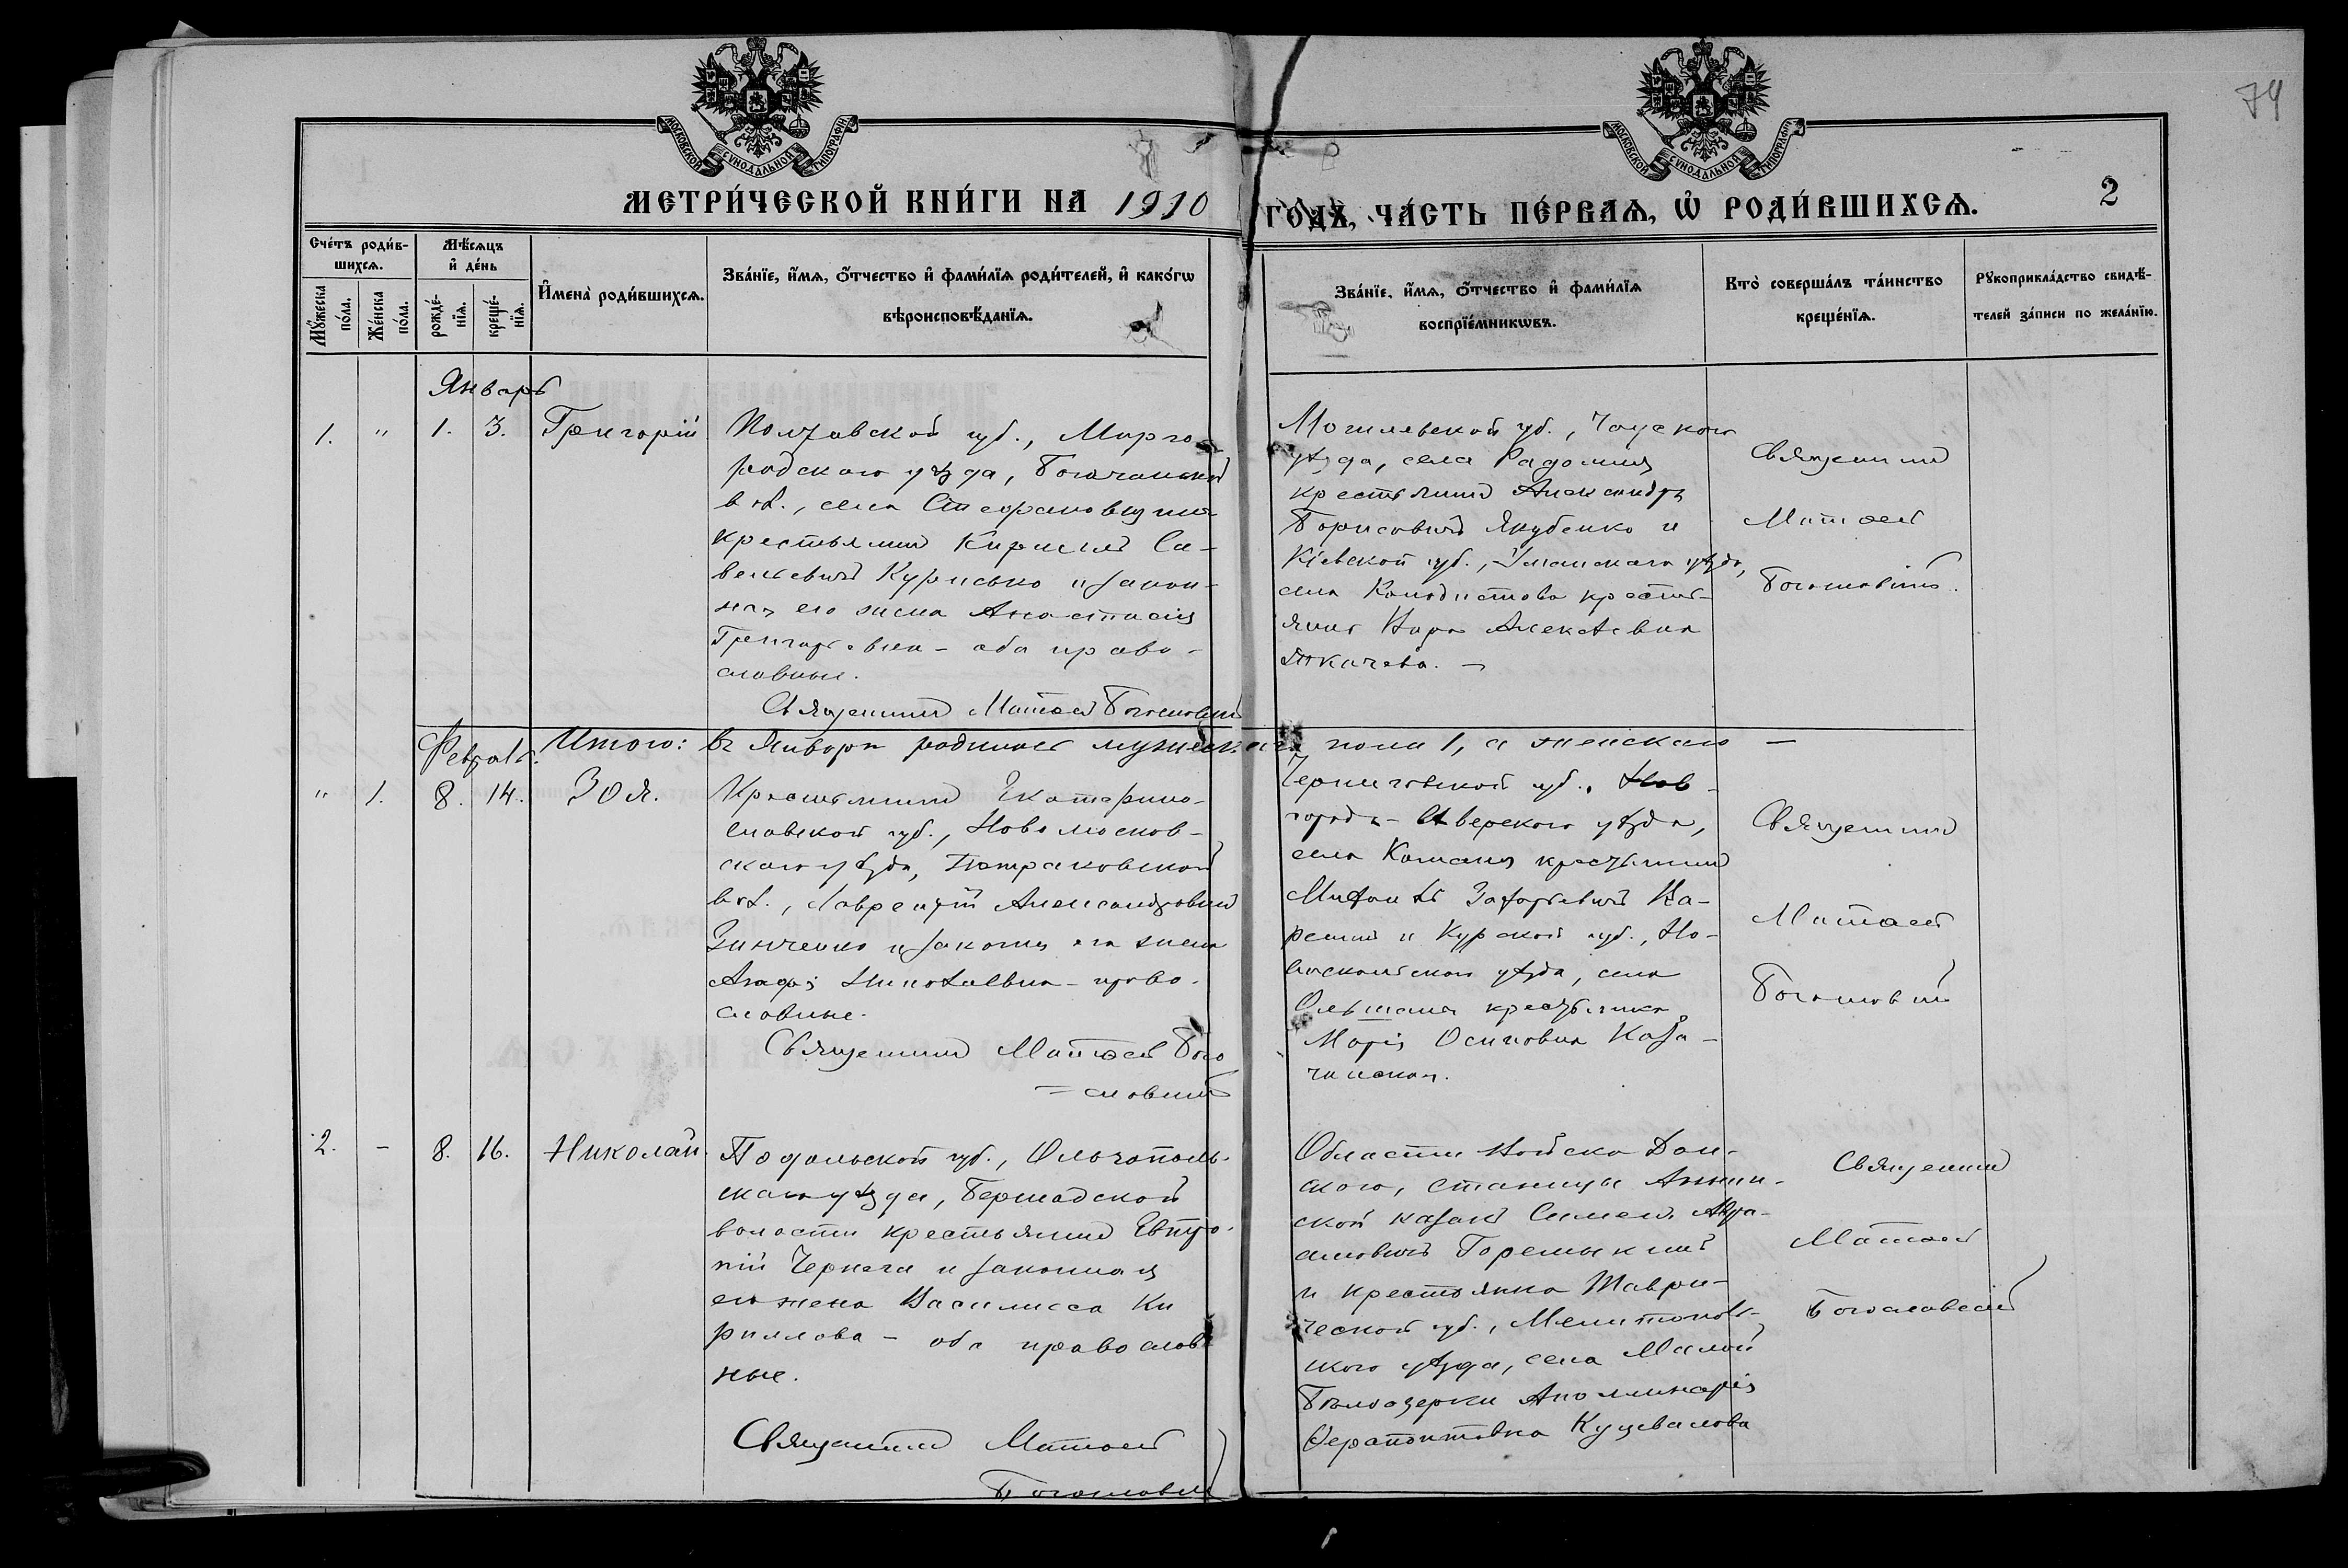 74
МОСКОВСКОЙ СѴНОДАЛЬНОЙ ТИПОГРАФІИ
МОСКОВСКОЙ СѴНОДАЛЬНОЙ ТИПОГРАФІИ
МЕТРИ́ЧЕСКОЙ КНИ́ГИ НА 1910
ГОДЪ, ЧА́СТЬ ПЕ́РВАѦ, Ѡ РОДИ́ВШИХСѦ.
2
Сче́тъ роди́в-
шихсѧ.
Мꙋ́жеска
по́ла.
Же́нска
по́ла.
Мѣ́сѧцъ
и҆ де́нь
рожде́-
нїѧ.
креще́-
нїѧ.
И҆мена̀ роди́вшихсѧ.
Зва́нїе, и҆́мѧ, ѻ҆́тчество и҆ фами́лїѧ роди́телей, и҆ како́гѡ
вѣроисповѣ́данїѧ.
Зва́нїе, и҆́мѧ, ѻ҆́тчество и҆ фами́лїѧ
воспрїе́мникѡвъ.
Кто̀ соверша́лъ та́инство
креще́нїѧ.
Рꙋкоприкла́дство свидѣ́-
телей за́писи по жела́нїю.
Январь
1. " 1. 3. Григорій
Полтавской губ., Мирго-
родскаго уѣзда, Богачанской
вол., села
крестьянинъ Кириллъ Са-
вельевичъ Курисько и закон-
ная его жена Анастасія
Григорьевна - оба право-
славные.
Священникъ Матѳей Богословскій
Могилевской губ., Чаускаго
уѣзда, села Радомля
крестьянинъ Александръ
Борисовичъ Якубенко и
Кіевской губ., Уманскаго уѣзда,
села Колодистова крестья-
янка Алексѣевна
Священникъ
Матѳей
Богословскій.
Итого: въ Январѣ родилось мужескаго пола 1, а женскаго —
Февраль.
" 1. 8. 14. Зоя.
Крестьянинъ Екатерино-
славской губ., Новомосков-
скаго уѣзда, Петраковской
вол., Лаврентій Александровичъ
Зинченко и законная его жена
Агафія Николаевна - право-
славные.
Священникъ Матѳей Бого
= словскій
Черниговской губ., Нов-
города-Сѣверскаго уѣзда,
села Комань крестьянинъ
Захарьевичъ Ка-
и Курской губ., Но-
вооскольскаго уѣзда, села
Ольшана крестьянка
Марія Осиповна Каза-
Священникъ
Матѳей
Богословскій
2. - 8. 16. Николай.
Подольской губ., Ольгополь-
скаго уѣзда, Бершадской
волости крестьянинъ Евтро-
пій Чернега и законная
его жена Василисса Ки
риллова - оба православ-
ные.
Священникъ Матѳей
Богословскій
Области Войска Дон-
ского, станицы Аннин-
ской казакъ Симеонъ Авра-
амовичъ Горемыкинъ
и крестьянка Таври-
ческой губ., Мелитополь-
скаго уѣзда, села Малой
Бѣлозерки Аполлинарія
Ѳерапонтовна Куцевалова
Священникъ
Матѳей
Богословскій